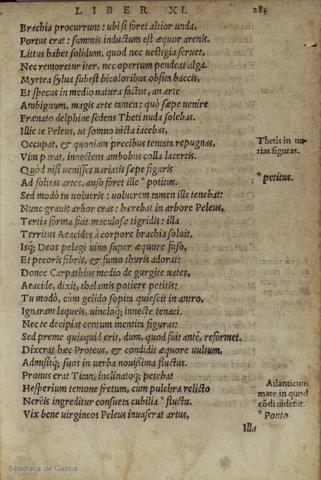 LIBER XI. 285
Brachia procurrunt: ubi si foret altior unda,
Portus erat: summis inductum est æquor arenis.
Littus habet solidum, quod nec uestigia seruet,
Nec remoretur iter, nec opertum pendeat alga.
Myrtea sylua subest bicoloribus obsita baccis,
Et specus in medio natura factus, an arte
Ambiguum, magis arte tamen: quò sæpe uenire
Frænato delphine sedens Theti nuda solebas.
Illic te Peleus, ut somno uicta iacebas,
Occupat, & quoniam precibus tentata repugnas,
Thetis in ua-
rias figuras.
Vim parat, innectens ambobus colla lacertis.
Quòd nisi uenisses uariatis sæpe figuris
* petitus.
Ad solitas artes, auso foret ille * potitus.
Sed modò tu uolucris: uolucrem tamen ille tenebat:
Nunc grauis arbor eras: hærebat in arbore Peleus,
Tertia forma fuit maculosæ tigridis: illa
Territus Aeacides à corpore brachia soluit.
Isq; Deos pelagi uino super æquore fuso,
Et pecoris fibris, & fumo thuris adorat:
Donec Carpathius medio de gurgite uates,
Aeacide, dixit, thalamis potiere petitis:
Tu modò, cùm gelido sopita quiescit in antro,
Ignaram laqueis, uincloq; innecte tenaci.
Nec te decipiat centum mentita figuras:
Sed preme quicquid erit, dum, quod fuit antè, reformet.
Dixerat hæc Proteus, & condidit æquore uultum,
Admisitq; suos in uerba nouissima fluctus.
Pronus erat Titan, inclinatoq; petebat
Hesperium temone fretum, cùm pulchra relicto
Atlanticum
mare, in quod
cōdi uidetur.
Nereis ingreditur consueta cubilia * fluctu.
* Ponto
Vix bene uirgineos Peleus inuaserat artus,
Illa
Biblioteca de Galicia